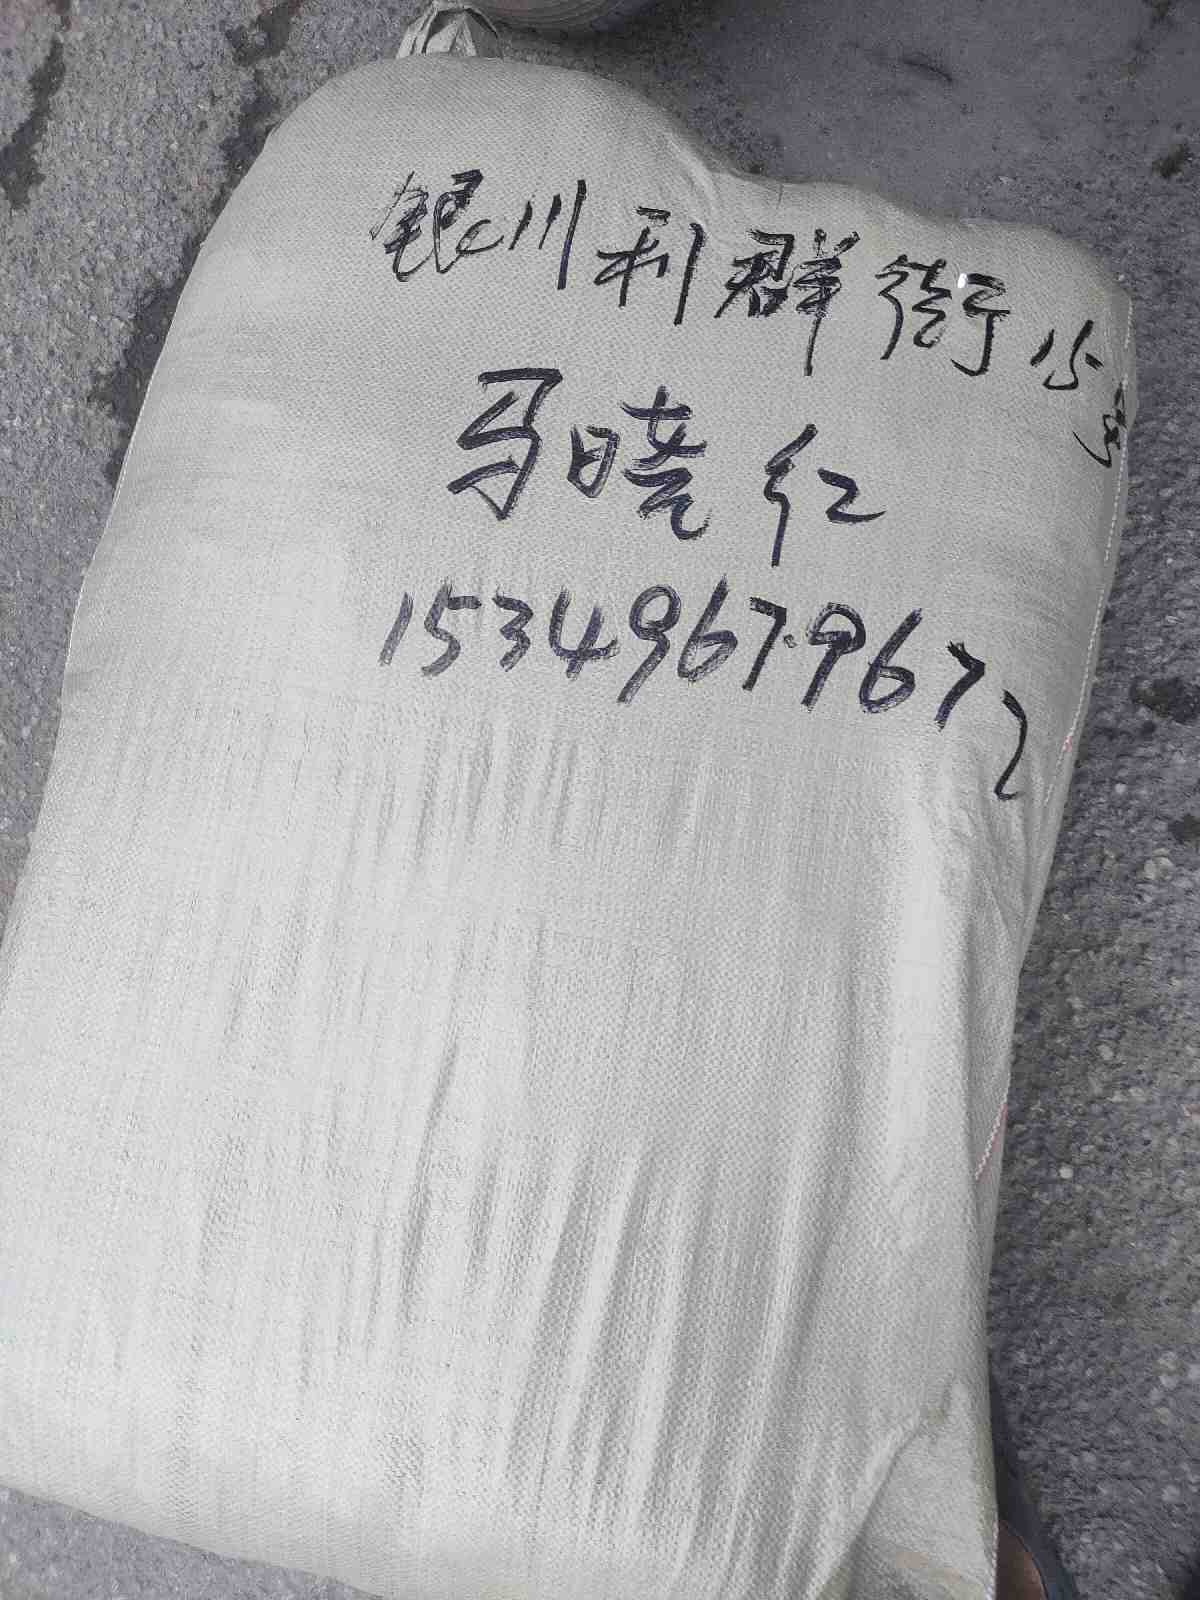 银川利群街15号
马晓红
15349679672